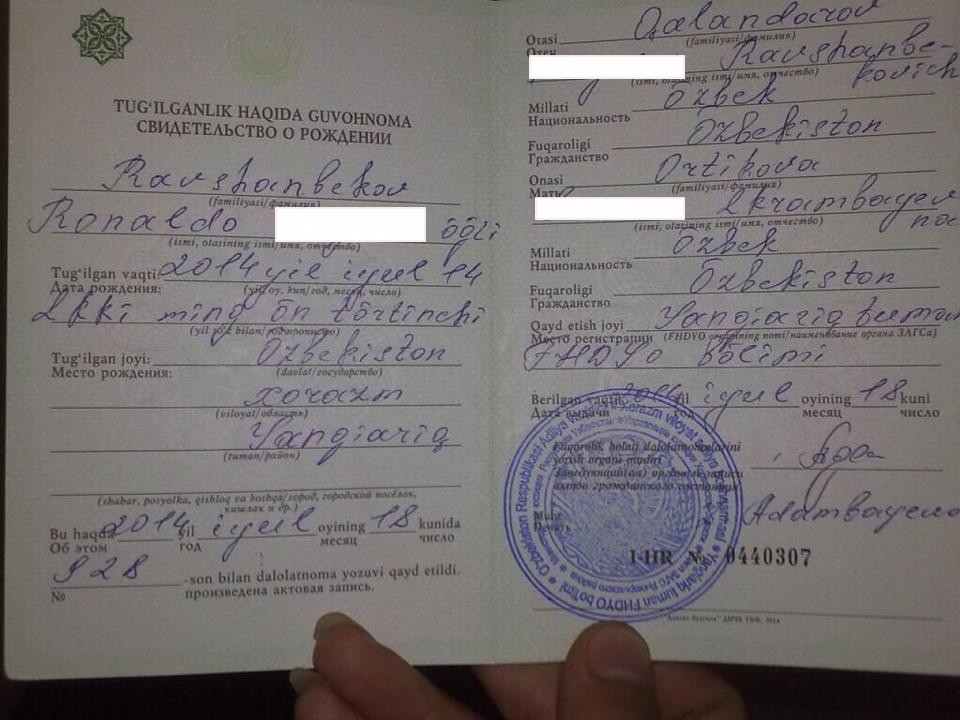 TUG‘ILGANLIK HAQIDA GUVOHNOMA
СВИДЕТЕЛЬСТВО О РОЖДЕНИИ
Ravshanbekov
(familiyasi/фамилия)
Ronaldo
o‘g‘li
(ismi, otasining ismi/имя, отчество)
Tug‘ilgan vaqti: 2014 yil iyul 14
Дата рождения: (yil, oy, kun/год, месяц, число)
Ikki ming o‘n to‘rtinchi
(yil so‘z bilan/год прописью)
Tug‘ilgan joyi: O‘zbekiston
Место рождения: (davlat/государство)
Xorazm
(viloyat/область)
Yangiariq
(tuman/район)
(shahar, posyolka, qishloq va boshqa/город, городской посёлок,
кишлак и др.)
Bu haqda 2014 yil iyul oyining 18 kunida
Об этом год месяц число
928 -son bilan dalolatnoma yozuvi qayd etildi.
№ произведена актовая запись.
Otasi Qalandarov
Отец (familiyasi/фамилия)
Ravshanbe-
kovich
(ismi, otasining ismi/имя, отчество)
Millati O‘zbek
Национальность
Fuqaroligi O‘zbekiston
Гражданство
Onasi Ortikova
Мать (familiyasi/фамилия)
Ikrambayev
(ismi, otasining ismi/имя, отчество)
Millati O‘zbek
Национальность
Fuqaroligi O‘zbekiston
Гражданство
Qayd etish joyi Yangiariq tuman
Место регистрации (FHDYO organining nomi/наименование органа ЗАГСа)
FHDYo bo‘limi
Berilgan vaqti: yil iyul oyining 18 kuni
Дата выдачи год месяц число
Fuqarolik holati dalolatnomalarini
yozish organi mudiri
Заведующий(ая) органом записи
актов гражданского состояния
Muhr
Печать
I-HR № 0440307